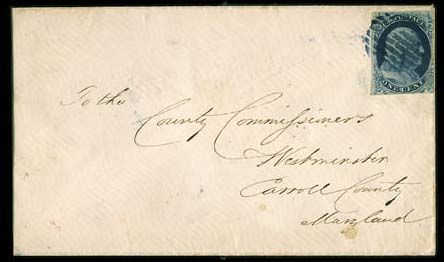 U.S. POSTAGE
ONE CENT.
To the
County Commissiners
Westminster
Carroll County
Maryland